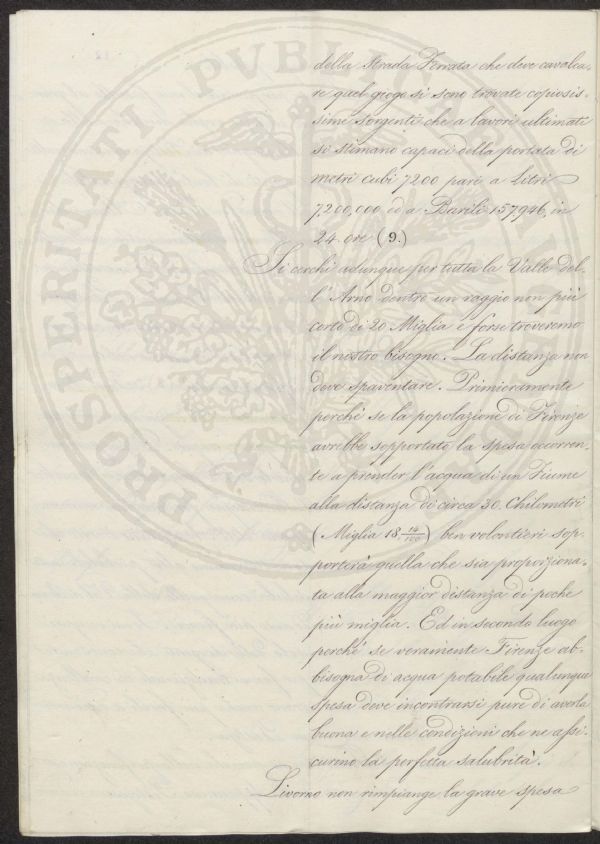 della Strada Ferrata che deve cavalca-
re quel giogo si sono trovate copiosis-
sime sorgenti che a lavori ultimati
si stimano capaci della portata di
metri cubi 7200 pari a Litri
7,200,000 ed a Barili 157,946, in
24 ore (9.)
Si cerchi adunque per tutta la Valle del-
l'Arno dentro un raggio non più
corto di 20 Miglia e forse troveremo
il nostro bisogno. La distanza non
deve spaventare. Primieramente
perché se la popolazione di Firenze
avrebbe sopportato la spesa occorren-
te a prender l'acqua di un Fiume
alla distanza di circa 30. Chilometri
(Miglia 18 14/100) ben volontieri sop-
porterà quella che sia proporziona-
ta alla maggior distanza di poche
più miglia. Ed in secondo luogo
perché se veramente Firenze ab-
bisogna di acqua potabile qualunque
spesa deve incontrarsi pure di averla
buona e nelle condizioni che ne assi-
curino la perfetta salubrità.
Livorno non rimpiange la grave spesa
PROSPERITATI PVBLICAE